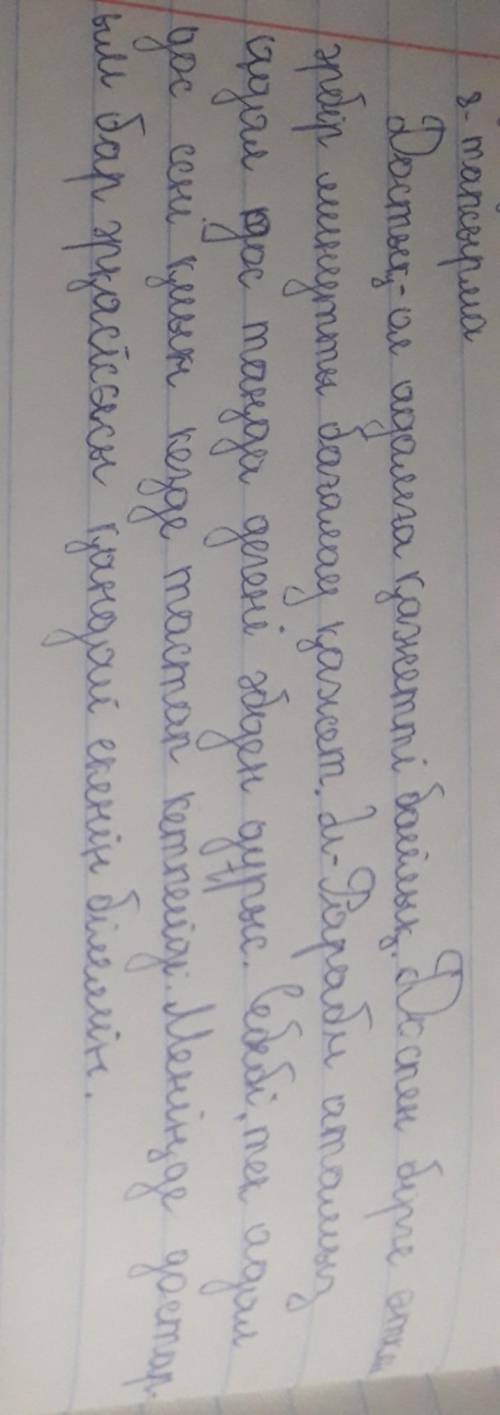 8-тапсырма
Достық-ол адамға қажетті байлық. Доспен бірге өткен
әрбір минутты бағалау қажет. Әл-Фараби атамыз
адал дос таңда дегені әбден дұрыс. Себебі, тек адал
дос сені қиын кезде тастап кетпейді. Менің де достар-
ым бар әрқайсысы қандай екенін білемін.